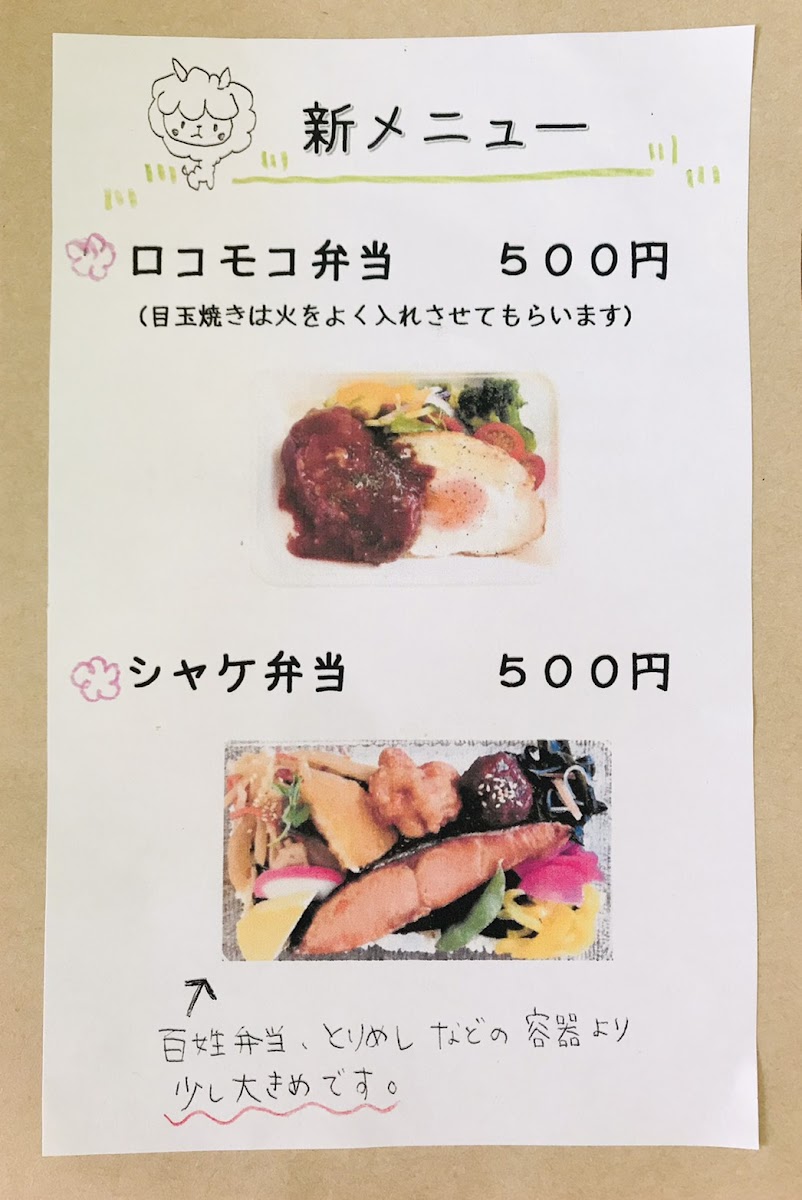 新メニュー
ロコモコ弁当　５００円
（目玉焼きは火をよく入れさせてもらいます）
シャケ弁当　５００円
百姓弁当、とりめしなどの容器より
少し大きめです。